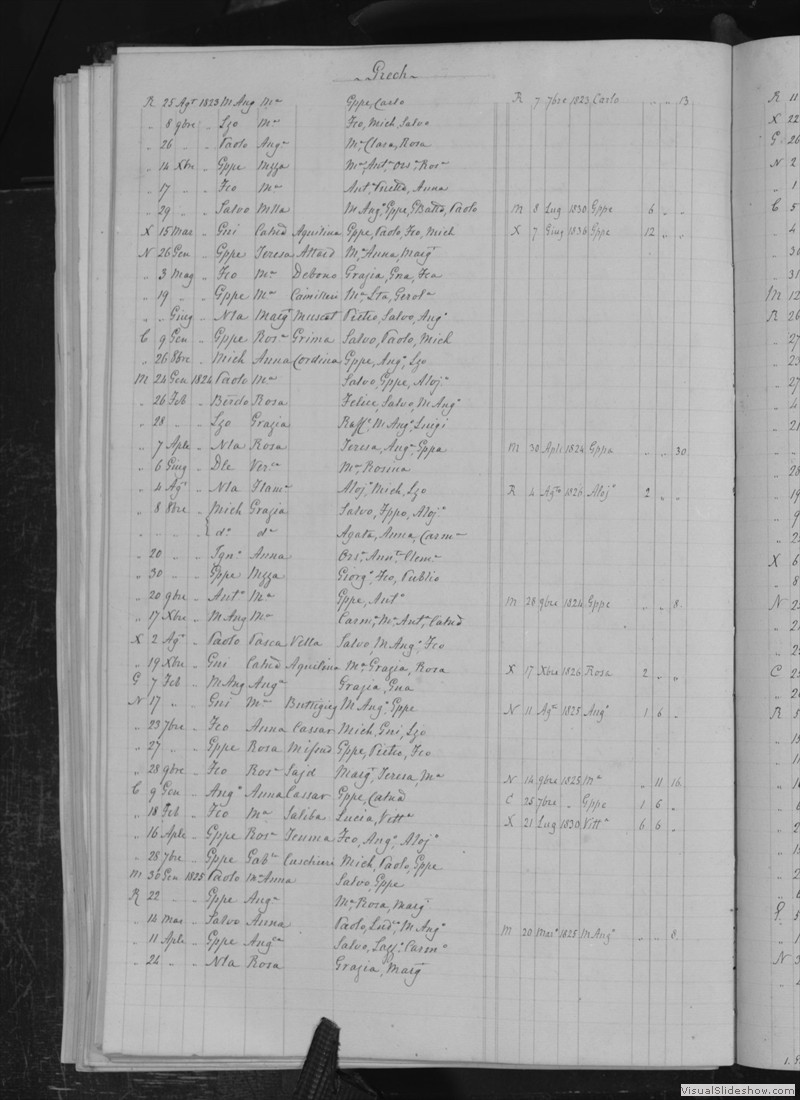 Grech
R 25 Agt 1823 M Ang Mª Gppe, Carlo R 7 7bre 1823 Carlo " " 13
" 8 9bre " Lzo Mª Fco, Mich, Salva
" 26 " " Paolo Angª Mª Clara, Rosa
" 14 Xbre " Gppe Nzza Mª, Antª, Orsª, Rosª
" 17 " " Fco Mª Antº, Pietro, Anna
" 29 " " Salvo Mlla M Angº, Gppe, GBatta, Paolo M 8 Lug 1830 Gppe 6 " "
X 15 Mar " Gni Catnd Aquilina Gppe, Paolo, Fco, Mich X 7 Giug 1836 Gppe 12 " "
N 26 Gen " Gppe Teresa Attard Mª, Anna, Margª
" 3 Mag " Fco Mª Debono Grazia, Gna, Fca
" 19 " " Gppe Mª Camilleri Mª, Lta, Gerolª
" " Giug " Nla Margª Muscat Pietro, Salvo, Angº
C 9 Gen " Gppe Rosª Grima Salvo, Paolo, Mich
" 26 8bre " Mich Anna Cordina Gppe, Angº, Lzo
M 24 Gen 1824 Paolo Mª Salvo, Gppe, Alojº
" 26 Feb " Berdo Rosa Felice, Salvo, M Angº
" 28 " " Lzo Grazia Raffº, M Angº, Luigi
" 7 Aple " Nla Rosa Teresa, Angª, Gppa M 30 Aple 1824 Gppa " " 30
" 6 Giug " Dle Verca Mª, Rosina
" 4 Agº " Nla Flamª Alojº, Mich, Lzo R 4 Agto 1826 Alojº 2 " "
" 8 8bre " Mich Grazia Salvo, Fppo, Alojº
" " " " dº dª Agata, Anna, Carmª
" 20 " " Ignº Anna Orsª, Annta, Clemª
" 30 " " Gppe Nzza Giorgº, Fco, Publio
" 20 9bre " Antº Mª Gppe, Antº M 28 9bre 1824 Gppe " " 8
" 17 Xbre " M Ang Mª Carmª, Mª Antª, Catnd
X 2 Agº " Paolo Pasca Vella Salvo, M Angº, Fco
" 19 Xbre " Gni Catnd Aquilina Mª, Grazia, Rosa X 17 Xbre 1826 Rosa 2 " "
G 7 Feb " M Ang Angª Grazia, Gna
N 17 " " Gni Mª Buttigieg M Angº, Gppe N 11 Agto 1825 Angº 1 6 "
" 23 7bre " Fco Anna Cassar Mich, Gni, Lzo
" 27 " " Gppe Rosa Mifsud Gppe, Pietro, Fco
" 28 9bre " Fco Rosª Sajd Margª, Teresa, Mª N 14 9bre 1825 Mª " 11 16
C 9 Gen " Angº Anna Cassar Gppe, Catnd C 25 7bre " Gppe 1 6 "
" 18 Feb " Fco Mª Saliba Lucia, Vittª X 21 Lug 1830 Vittª 6 6 "
" 16 Aple " Gppe Rosª Teuma Fco, Angº, Alojº
" 28 7bre " Gppe Gabla Caschieri Mich, Paolo, Gppe
M 30 Gen 1825 Paolo Mª Anna Salvo, Gppe
R 22 " " Gppe Angª Mª Rosa, Margª
" 14 Mar " Salvo Anna Paolo, Ludº, M Angº M 20 Marº 1825 M Angº " " 8
" 11 Aple " Gppe Angca Salvo, Carmº
" 24 " " Nla Rosa Grazia, Margª
R 11
X 22
G 26
N 2
C 5
VisualSlideshow.com